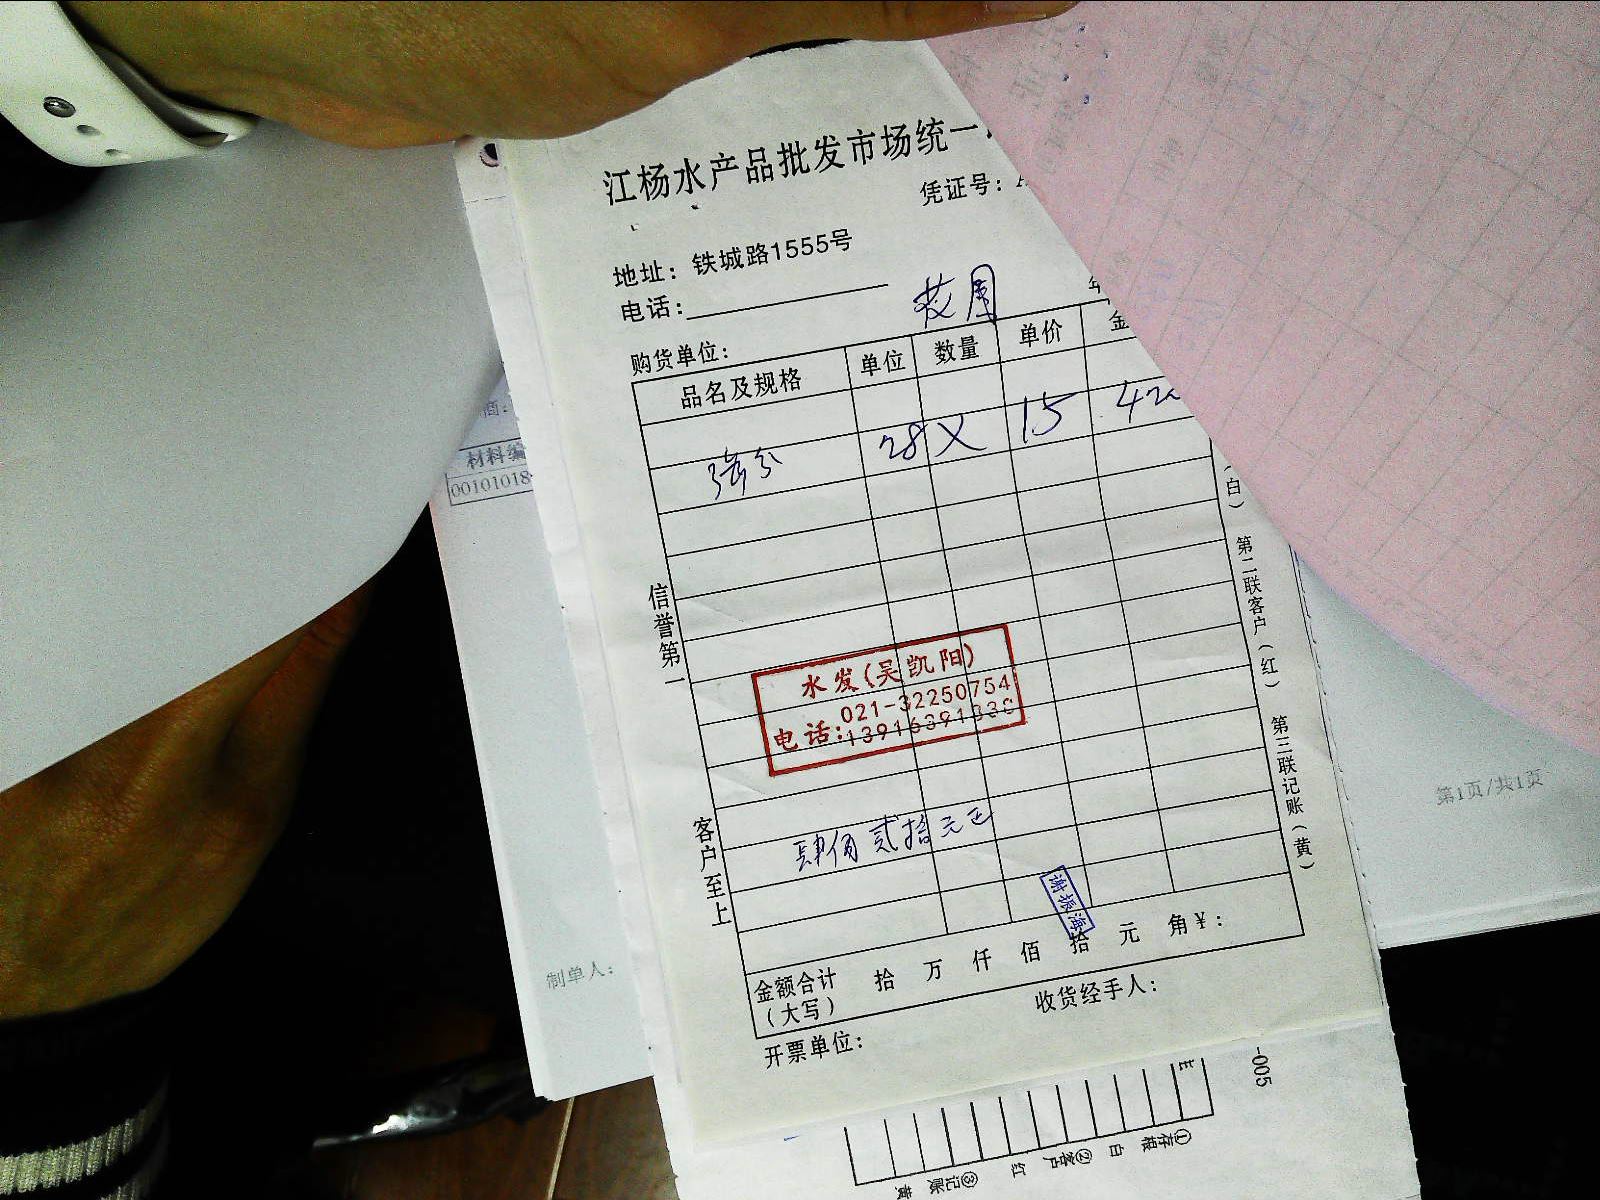 江杨水产品批发市场统一
凭证号：
地址：铁城路1555号
电话：
购货单位：
品名及规格 单位 数量 单价 金
28 X 15 420
信誉第一
客户至上
水发(吴凯阳)
021-32250754
电话:13916391330
肆佰贰拾元正
谢振海
金额合计 拾 万 仟 佰 拾 元 角 ¥：
（大写）
收货经手人：
开票单位：
（白） 第二联客户（红） 第三联记账（黄）
商：
材料编
00101018
制单人：
第1页/共1页
-005
①存根 白 ②客户 红 ③记账 黄